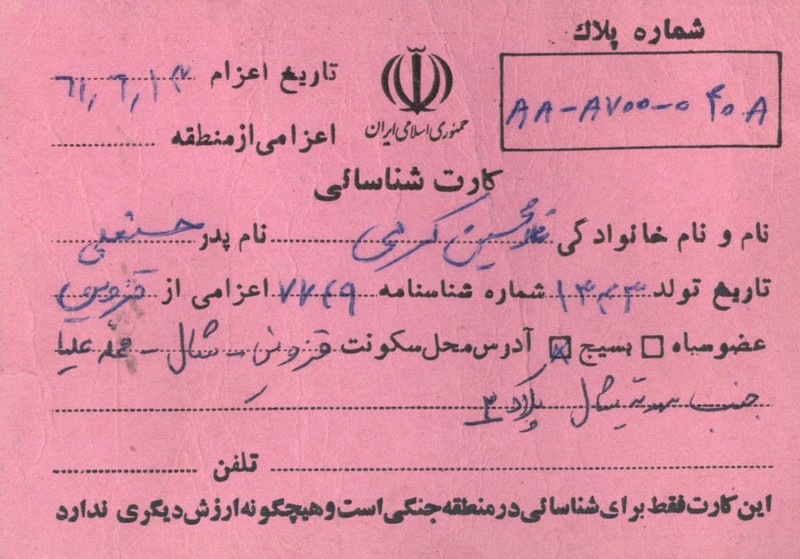 شماره پلاک
۸۸-۸۷۰۰-۰۴۰۸
تاریخ اعزام ۶۱٫۶٫۱۳
جمهوری اسلامی ایران
اعزامی از منطقه
کارت شناسائی
نام و نام خانوادگی غلامحسین کرمی نام پدر حسنعلی
تاریخ تولد ۱۳۴۳ شماره شناسنامه ۷۷۴۹ اعزامی از قزوین
عضو سپاه بسیج آدرس محل سکونت قزوین - شال - محله علیا
جنب شال پلاک ۳
تلفن
این کارت فقط برای شناسائی در منطقه جنگی است و هیچگونه ارزش دیگری ندارد